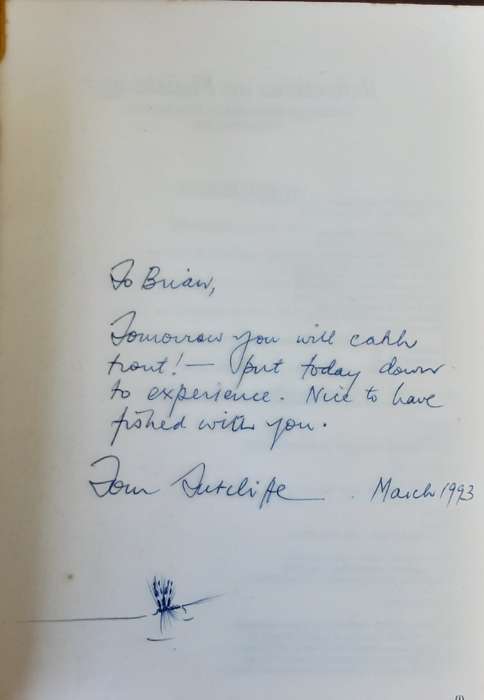 To Brian,
Tomorrow you will catch
trout! — put today down
to experience. Nice to have
fished with you.
Tom Sutcliffe . March 1993